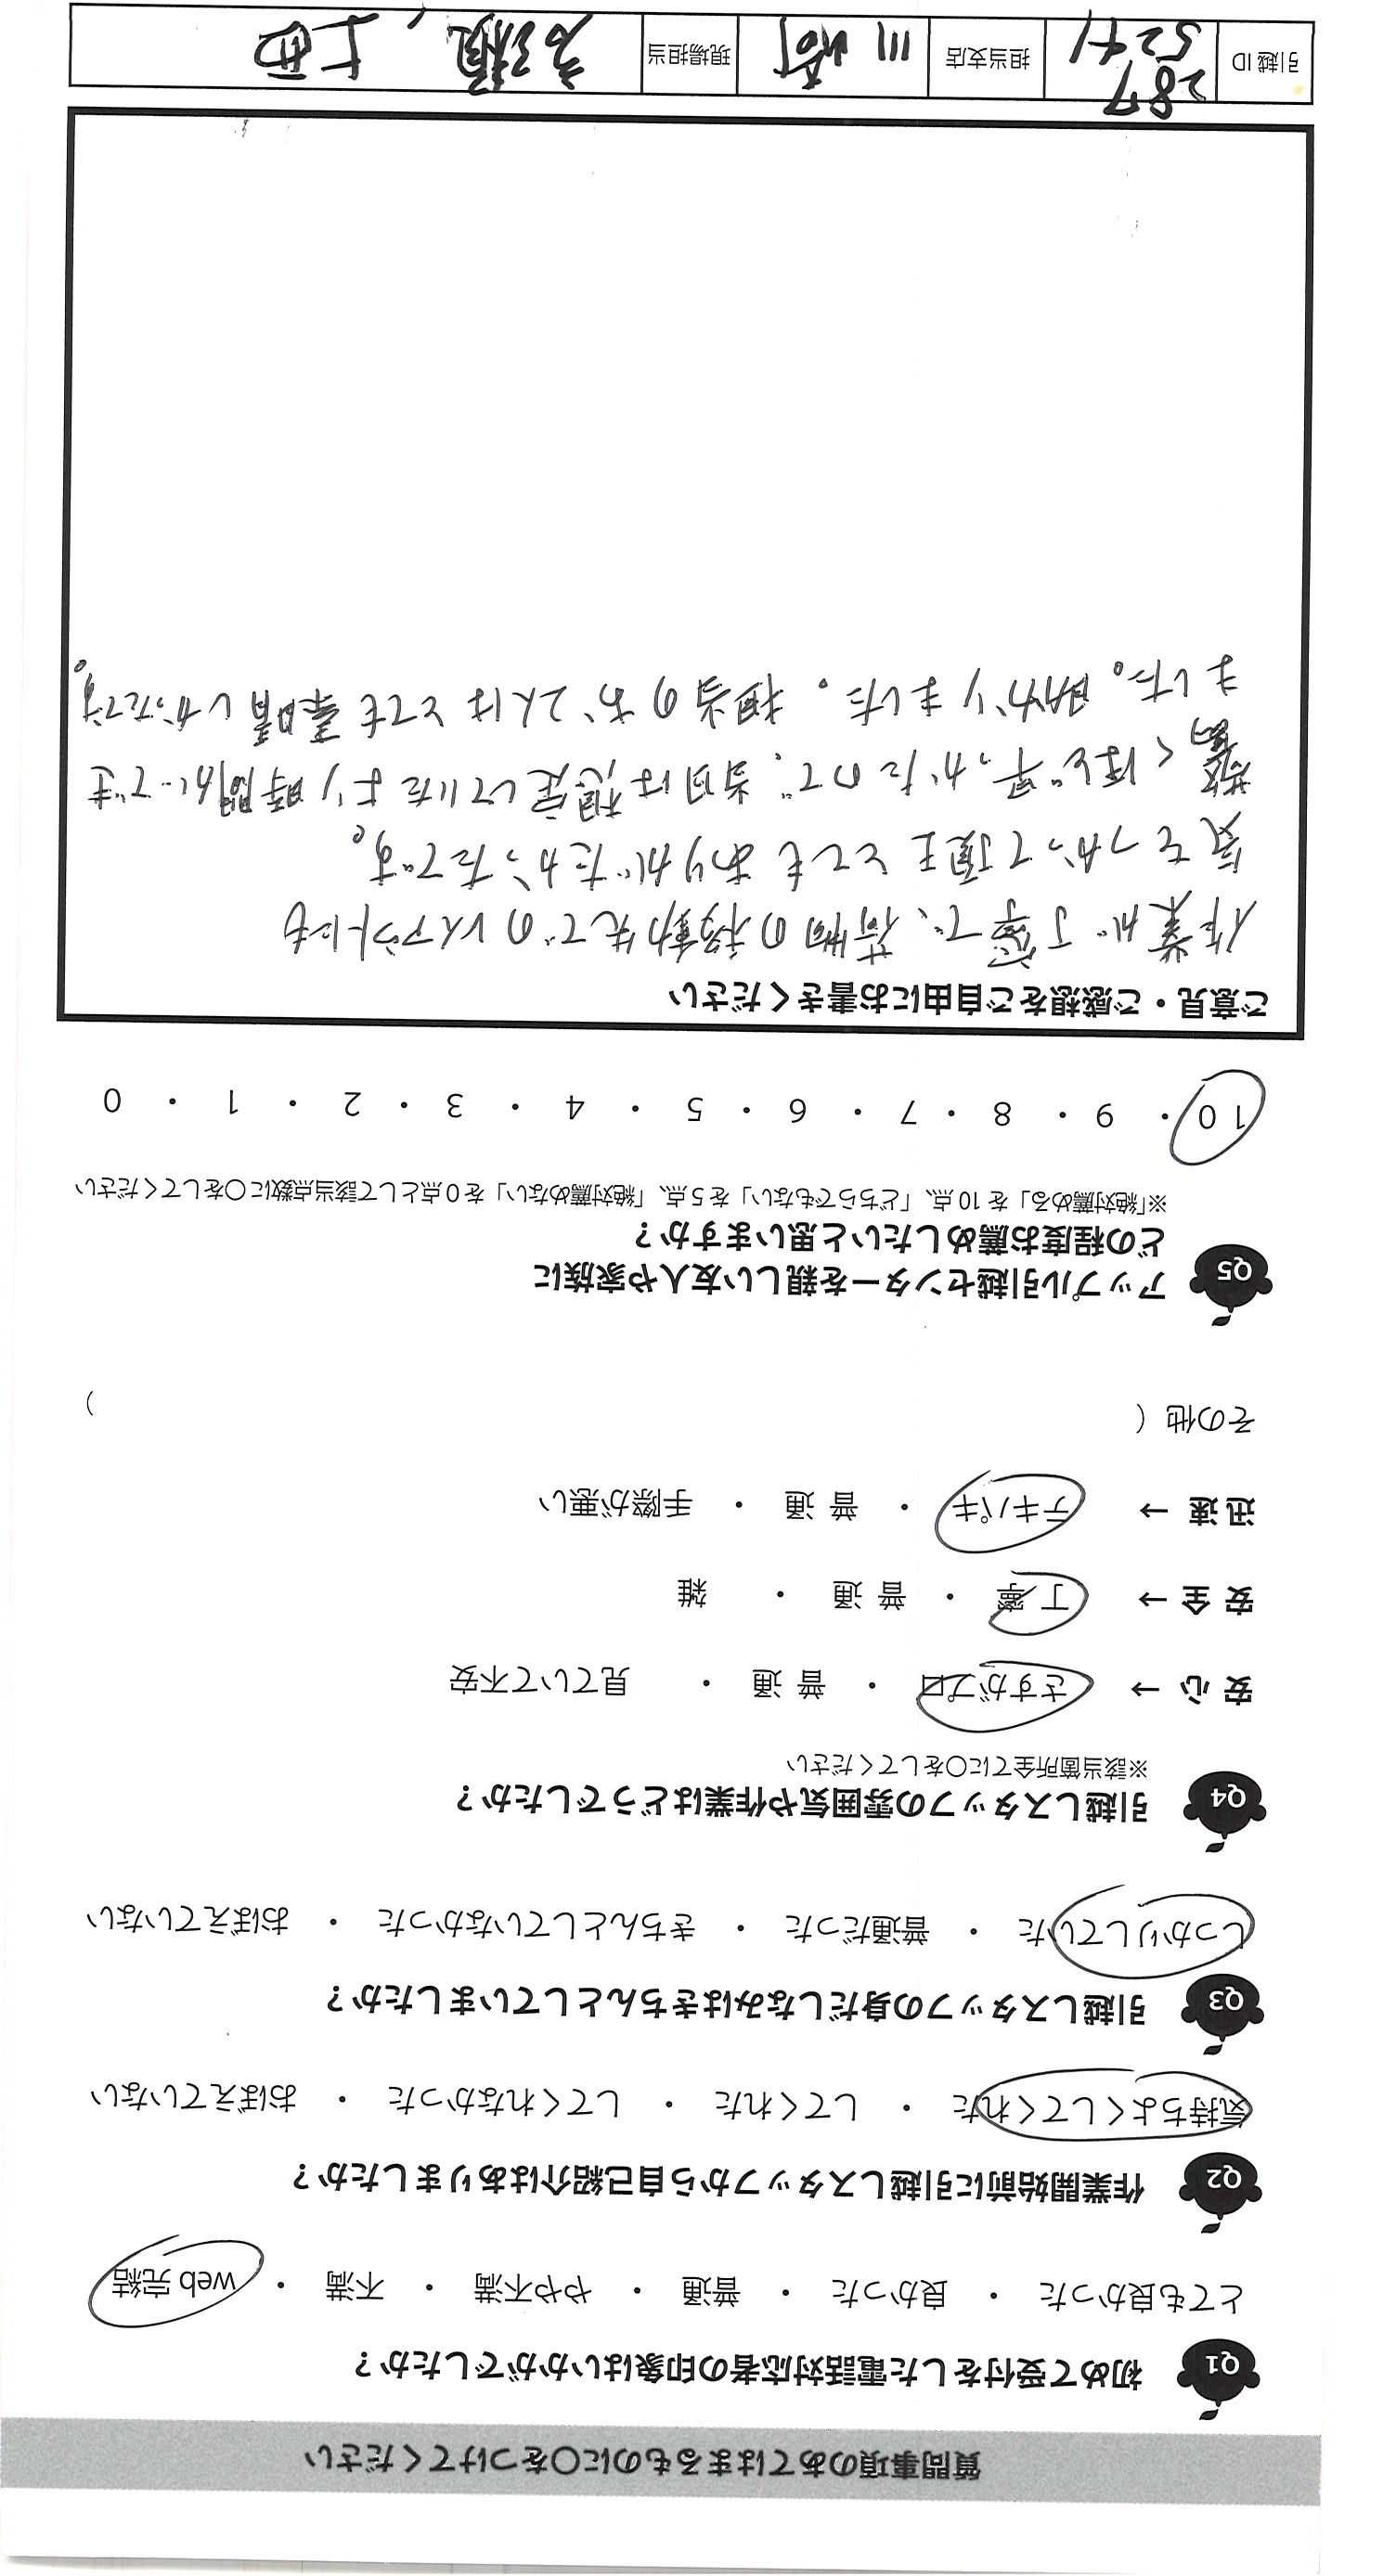 質問事項のあてはまるものに〇をつけてください
Q1 初めて受付をした電話対応者の印象はいかがでしたか？
とても良かった ・ 良かった ・ 普通 ・ やや不満 ・ 不満 ・ web 完結
Q2 作業開始前に引越しスタッフから自己紹介はありましたか？
気持ちよくしてくれた ・ してくれた ・ してくれなかった ・ おぼえていない
Q3 引越しスタッフの身だしなみはきちんとしていましたか？
しっかりしていた ・ 普通だった ・ きちんとしていなかった ・ おぼえていない
Q4 引越しスタッフの雰囲気や作業はどうでしたか？
※該当箇所全てに〇をしてください
安 心 → さすがプロ ・ 普 通 ・ 見ていて不安
安 全 → 丁 寧 ・ 普 通 ・ 雑
迅 速 → テキパキ ・ 普 通 ・ 手際が悪い
その他（ ）
Q5 アップル引越センターを親しい友人や家族に
どの程度お薦めしたいと思いますか？
※「絶対薦める」を 10 点、「どちらでもない」を 5 点、「絶対薦めない」を 0 点として該当点数に〇をしてください
10 ・ 9 ・ 8 ・ 7 ・ 6 ・ 5 ・ 4 ・ 3 ・ 2 ・ 1 ・ 0
ご意見・ご感想をご自由にお書きください
作業が丁寧で、荷物の移動先でのレイアウトにも
気をつかって頂きとてもありがたかったです。
驚くほど早かったので、当日は想定していたより時間ができ
ました。助かりました。担当のお2人はとても素晴しかったです。
引越 ID 287 5241 担当支店 川崎 現場担当